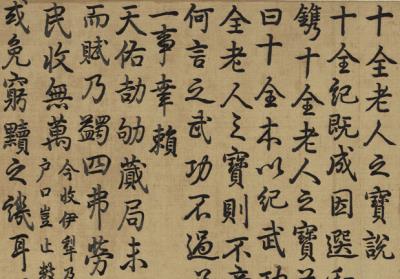 十全老人之寶說
十全記既成因選
鐫十全老人之寶
曰十全本以紀武功
全老人之寶則不
何言之武功不過
一事幸賴
天佑劼劬蕆局未
而賦乃蠲四弗勞
民收無萬
今收伊犁乃
户口豈止
或免窮黷之譏耳